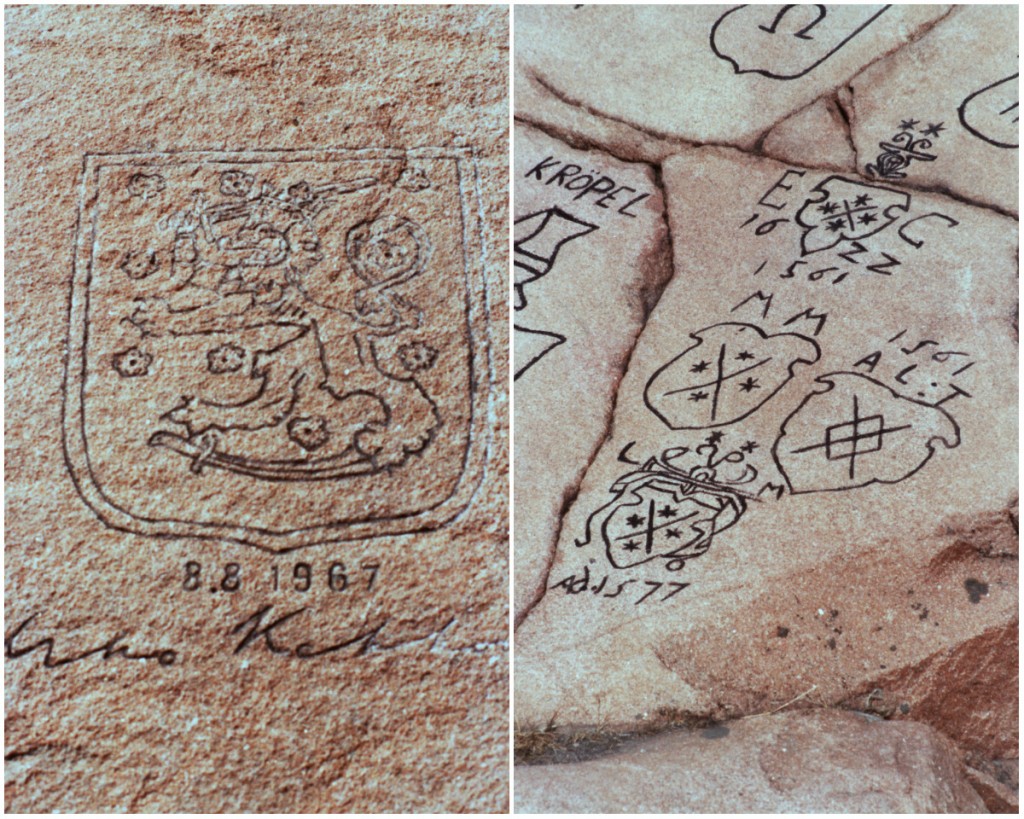 8.8 1967
Urho Kekko
KRÖPEL
E S C C
16 22
1561
M M
1561
A L T
S M
Ad. 1577